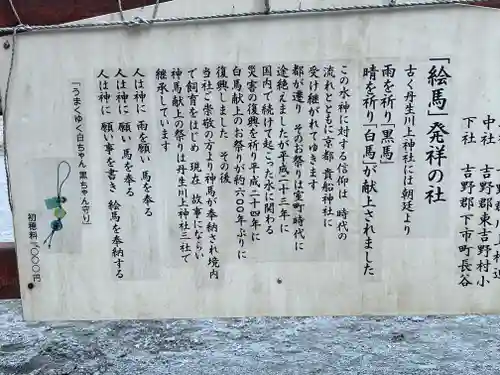 中社　吉野郡東吉野村小
下社　吉野郡下市町長谷
「絵馬」発祥の社
古く丹生川上神社には朝廷より
雨を祈り「黒馬」
晴を祈り「白馬」が献上されました
この水神に対する信仰は　時代の
流れとともに京都　貴船神社に
受け継がれてゆきます
都が遷り　そのお祭りは室町時代に
途絶えましたが平成二十三年に
国内で続けて起こった水に関わる
災害の復興を祈り平成二十四年に
白馬献上のお祭りが約六〇〇年ぶりに
復興しました　その後
当社ご崇敬の方より神馬が奉納され境内
で飼育をはじめ　現在　故事にならい
神馬献上の祭りは丹生川上神社三社で
継承しています
人は神に　雨を願い　馬を奉る
人は神に　願い　馬を奉る
人は神に　願い事を書き　絵馬を奉納する
「うまくゆく白ちゃん　黒ちゃん守り」
初穂料　1000円